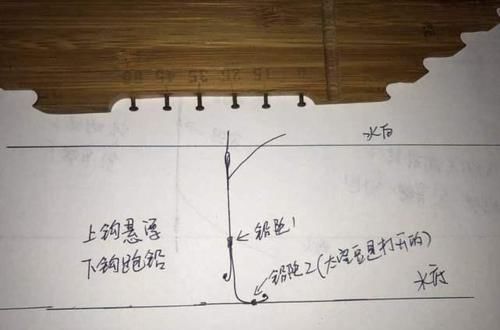 水面
上钩悬浮
铅陀1
下钩跑铅
铅陀2(太空豆是打开的)
水底